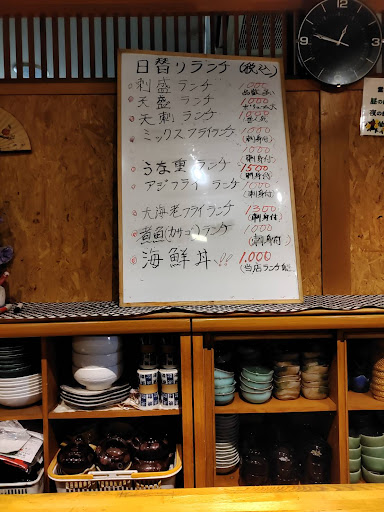 日替りランチ (税込)
刺盛ランチ 1000
天盛ランチ 1,000
天刺ランチ
ミックスフライランチ 1000 (刺身付)
うな重ランチ 1500 (刺身付)
アジフライランチ 1000 (刺身付)
大海老フライランチ 1300 (刺身付)
煮魚(カサゴ)ランチ 1000 (刺身付)
海鮮丼!! 1.000